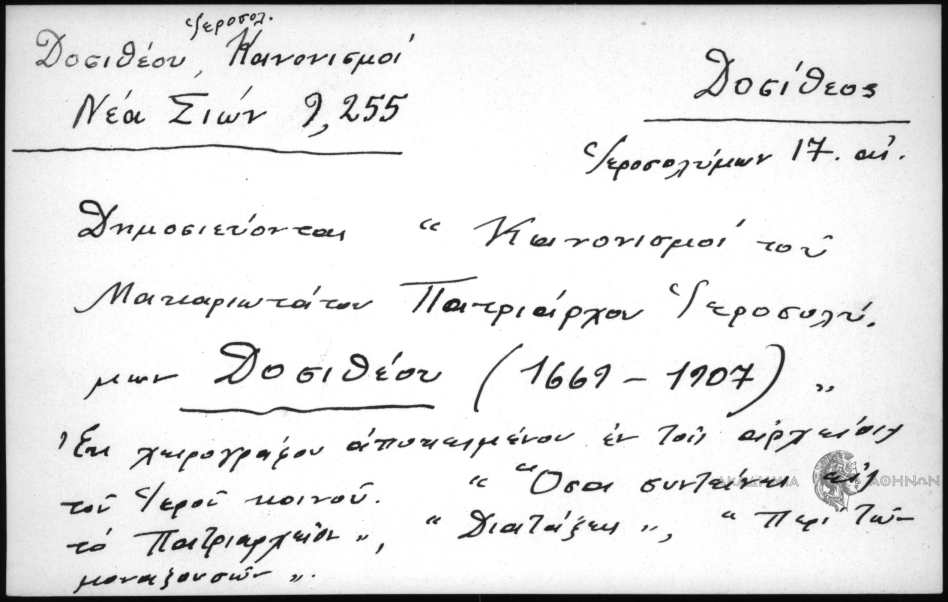 Ἱεροσολ.
Δοσιθέου, Κανονισμοί
Νέα Σιών 9, 255
Δοσίθεος
Ἱεροσολύμων 17. αἰ.
Δημοσιεύονται “Κανονισμοί τοῦ
Μακαριωτάτου Πατριάρχου Ἱεροσολύ.
μων Δοσιθέου (1669 – 1907)„
Ἐκ χειρογράφου ἀποκειμένου ἐν τοῖς ἀρχείοις
τοῦ Ἱεροῦ κοινοῦ. “Ὅσα συντείνει εἰς
τό Πατριαρχεῖον„, “Διατάξεις„, “Περί τῶν
μοναζουσῶν„.
ΑΚΑΔΗΜΙΑ ΑΘΗΝΩΝ